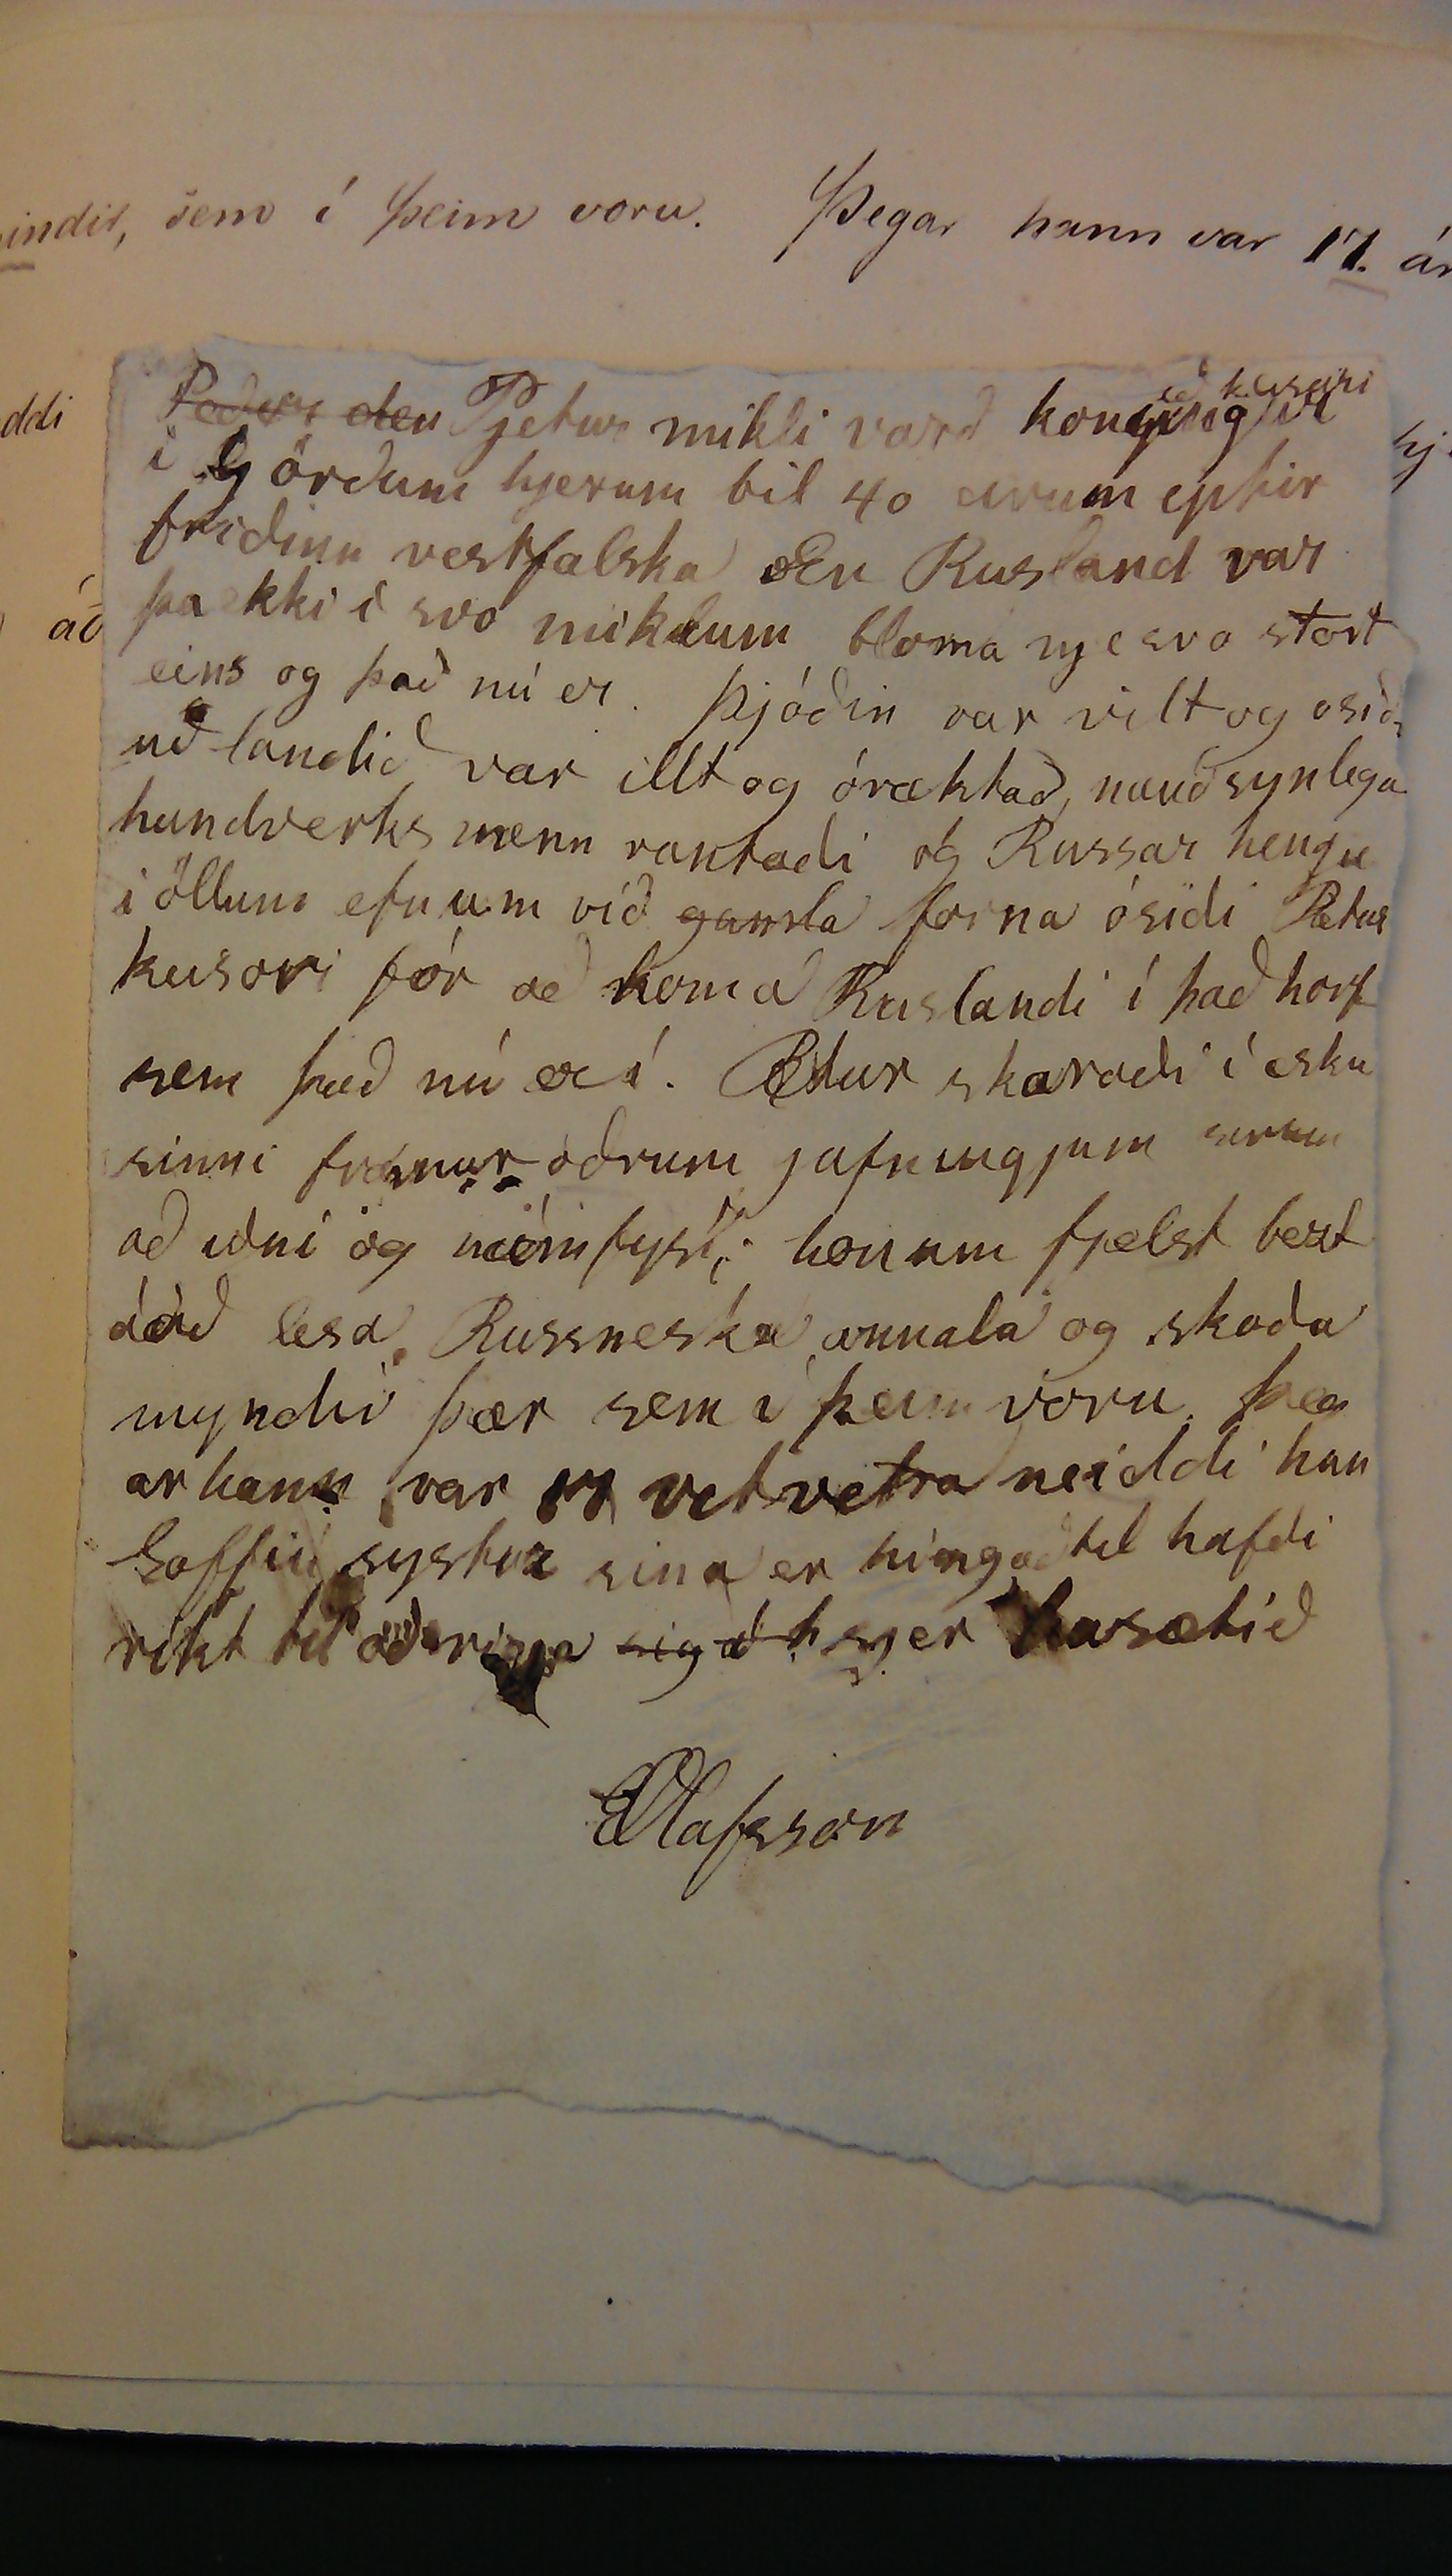 indir, sem í þeim voru. Þegar hann var 17. ár
ddi
áð
hj
Peður den Pjetur mikli varð konungur
eð keisari
i Görðum hjerum bil 40 arum eptir
friðinn vestfalska En Rusland var
þa ekki í svo miklum bloma nje svo stort
eins og það nú er. Þjóðin var vilt og osið-
uð landið var illt og óræktað, nauðsynlega
handverks menn vantadi og Russar hengu
i öllum efnum við gamla forna ósidi Petur
keisari fór að koma Ruslandi í það horf
sem það nú er í. Petur skaradi í æsku
sinni framur öðrum jafningjum sinum
að iðni og námfysi; honum fjelst bezt
áað lesa Russneska annala og skoða
myndir þær sem i þeim voru. Þeg
ar hann var 17 vet vetra neiddi han
Soffiu systur sina er híngað til hafdi
rikt til að risa sig a h sjer hasætið
EOlafsson